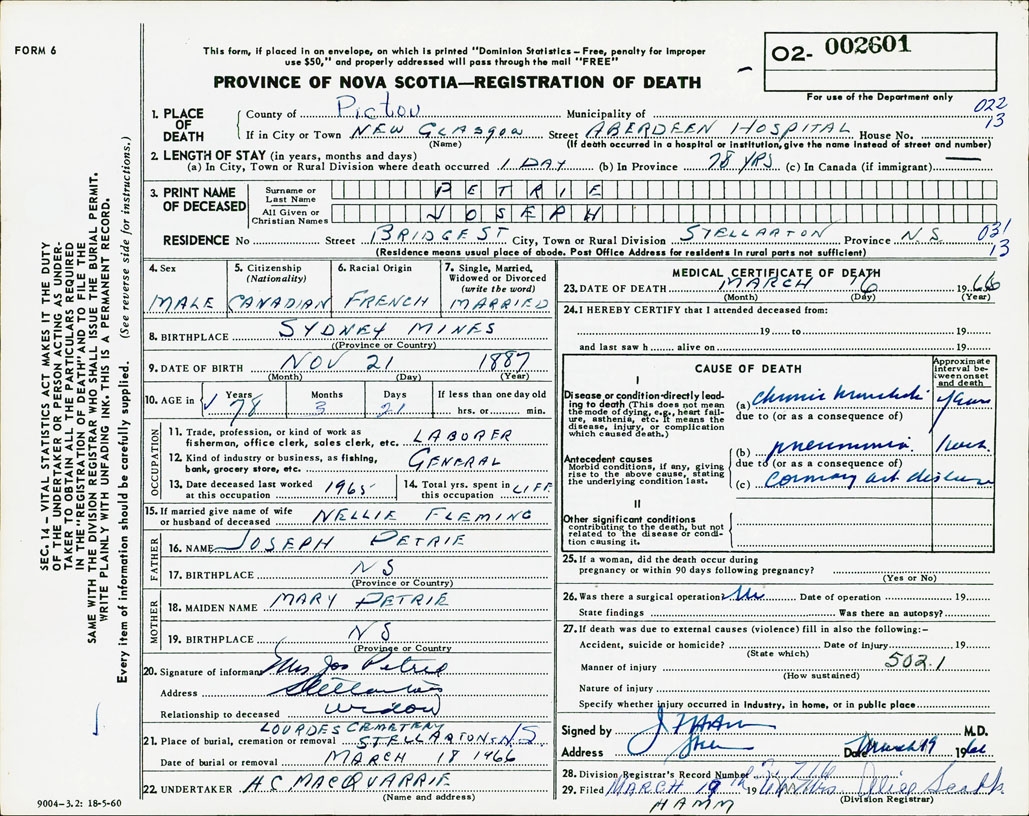 FORM 6
This form, if placed in an envelope, on which is printed "Dominion Statistics – Free, penalty for improper
use $50," and properly addressed will pass through the mail "FREE"
O2- 002601
PROVINCE OF NOVA SCOTIA—REGISTRATION OF DEATH
For use of the Department only
022
13
1. PLACE OF DEATH
County of Pictou Municipality of
If in City or Town NEW GLASGOW Street ABERDEEN HOSPITAL House No.
(Name) (If death occurred in a hospital or institution, give the name instead of street and number)
2. LENGTH OF STAY (in years, months and days)
(a) In City, Town or Rural Division where death occurred 1 DAY (b) In Province 78 YRS (c) In Canada (if immigrant) —
3. PRINT NAME OF DECEASED
Surname or Last Name PETRIE
All Given or Christian Names JOSEPH
RESIDENCE No Street BRIDGE ST City, Town or Rural Division STELLARTON Province N.S.
(Residence means usual place of abode. Post Office Address for residents in rural parts not sufficient)
031
13
4. Sex MALE
5. Citizenship (Nationality) CANADIAN
6. Racial Origin FRENCH
7. Single, Married, Widowed or Divorced (write the word) MARRIED
8. BIRTHPLACE SYDNEY MINES
(Province or Country)
9. DATE OF BIRTH NOV 21 1887
(Month) (Day) (Year)
10. AGE in Years 78 Months 3 Days 21 If less than one day old
hrs. or min.
OCCUPATION
11. Trade, profession, or kind of work as
fisherman, office clerk, sales clerk, etc. LABORER
12. Kind of industry or business, as fishing,
bank, grocery store, etc. GENERAL
13. Date deceased last worked
at this occupation 1965
14. Total yrs. spent in
this occupation LIFE
15. If married give name of wife
or husband of deceased NELLIE FLEMING
FATHER
16. NAME JOSEPH PETRIE
17. BIRTHPLACE NS
(Province or Country)
MOTHER
18. MAIDEN NAME MARY PETRIE
19. BIRTHPLACE NS
(Province or Country)
20. Signature of informant Mrs Jos Petrie
Address Stellarton
Relationship to deceased widow
LOURDES CEMETERY
21. Place of burial, cremation or removal STELLARTON N.S.
Date of burial or removal MARCH 18 1966
22. UNDERTAKER H.C. MACQUARRIE
(Name and address)
MEDICAL CERTIFICATE OF DEATH
23. DATE OF DEATH MARCH 16 1966
(Month) (Day) (Year)
24. I HEREBY CERTIFY that I attended deceased from:
19 to 19
and last saw h alive on 19
CAUSE OF DEATH
Approximate interval between onset and death
I
Disease or condition directly leading to death (This does not mean the mode of dying, e.g., heart failure, asthenia, etc. It means the disease, injury, or complication which caused death.)
(a) Chronic bronchitis years
due to (or as a consequence of)
Antecedent causes
Morbid conditions, if any, giving rise to the above cause, stating the underlying condition last.
(b) pneumonia 1 week
due to (or as a consequence of)
(c) Coronary art disease
II
Other significant conditions
contributing to the death, but not related to the disease or condition causing it.
25. If a woman, did the death occur during
pregnancy or within 90 days following pregnancy?
(Yes or No)
26. Was there a surgical operation? No Date of operation 19
State findings Was there an autopsy?
27. If death was due to external causes (violence) fill in also the following:–
Accident, suicide or homicide? Date of injury 19
(State which)
Manner of injury 502.1
(How sustained)
Nature of injury
Specify whether injury occurred in Industry, in home, or in public place
Signed by M.D.
Address Date March 19 1966
28. Division Registrar's Record Number
29. Filed MARCH 19 19 Mrs. Alice
(Division Registrar)
HAMM
SEC. 14 – VITAL STATISTICS ACT MAKES IT THE DUTY
OF THE UNDERTAKER OR PERSON ACTING AS UNDERTAKER TO OBTAIN ALL THE PARTICULARS REQUIRED
IN THE "REGISTRATION OF DEATH" AND TO FILE THE
SAME WITH THE DIVISION REGISTRAR WHO SHALL ISSUE THE BURIAL PERMIT.
WRITE PLAINLY WITH UNFADING INK. THIS IS A PERMANENT RECORD.
Every item of information should be carefully supplied. (See reverse side for instructions.)
9004–3.2: 18-5-60